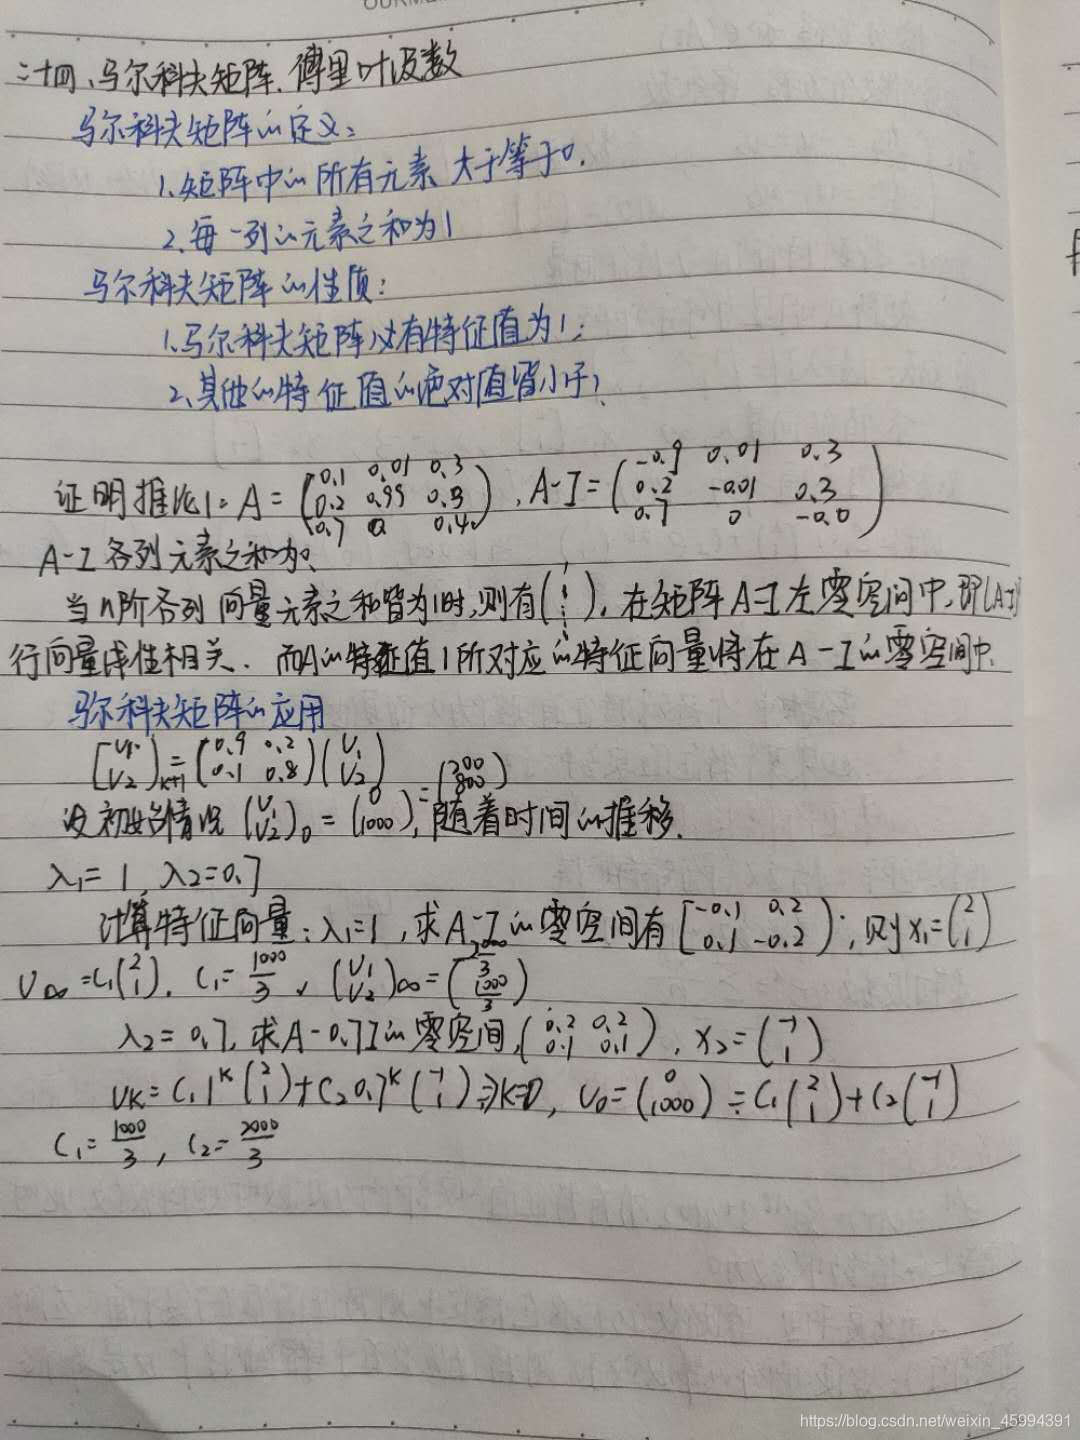 二十四、马尔科夫矩阵、傅里叶级数
马尔科夫矩阵的定义:
1.矩阵中的所有元素大于等于0.
2.每一列的元素之和为1
马尔科夫矩阵的性质:
1.马尔科夫矩阵必有特征值为1;
2.其他的特征值的绝对值皆小于1.
证明推论1: A = (0.1 0.01 0.3 / 0.2 0.99 0.3 / 0.7 0 0.4), A-I = (-0.9 0.01 0.3 / 0.2 -0.01 0.3 / 0.7 0 -0.6)
A-I各列元素之和为0.
当n阶各列向量元素之和皆为1时,则有(1 ⋮ 1),在矩阵A-I左零空间中,即(A-I)
行向量线性相关. 而A的特征值1所对应的特征向量将在A-I的零空间中.
马尔科夫矩阵的应用
[U1 / U2)k+1 = (0.9 0.2 / 0.1 0.8)(U1 / U2)
设初始情况 (U1 / U2)0 = (0 / 1000), = (200 / 800) 随着时间的推移.
λ1=1 λ2=0.7
计算特征向量: λ1=1, 求A-I的零空间有[-0.1 0.2 / 0.1 -0.2), 则x1=(2 / 1)
U∞ = C1(2 / 1), C1=1000/3, (U1 / U2)∞ = (2000/3 / 1000/3)
λ2=0.7, 求A-0.7I的零空间, (0.2 0.2 / 0.1 0.1), x2=(-1 / 1)
UK=C1 1^K (2 / 1)+C2 0.7^K (-1 / 1) K=0, U0=(0 / 1000)=C1(2 / 1)+C2(-1 / 1)
C1=1000/3, C2=2000/3
https://blog.csdn.net/weixin_45994391